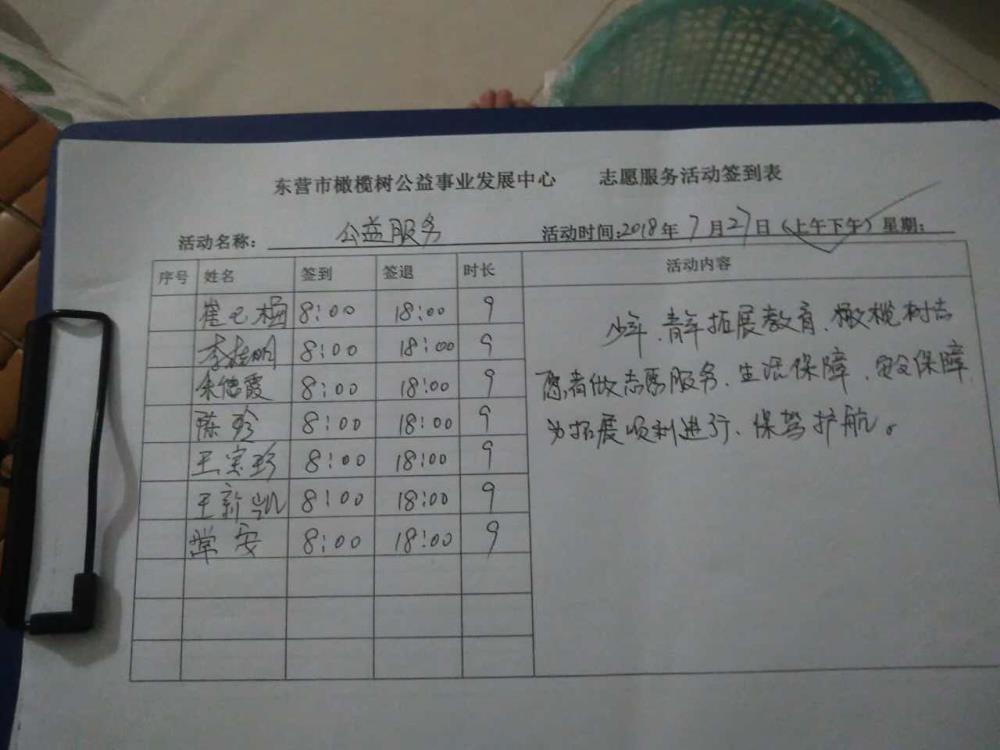 东营市橄榄树公益事业发展中心 志愿服务活动签到表
活动名称： 公益服务 活动时间:2018年7月27日（上午下午）星期：
序号 姓名 签到 签退 时长 活动内容
崔 梅 8:00 18:00 9
李桂明 8:00 18:00 9
朱德霞 8:00 18:00 9
陈珍 8:00 18:00 9
王宝珍 8:00 18:00 9
王新凯 8:00 18:00 9
常安 8:00 18:00 9
少年、青年拓展教育、橄榄树志
愿者做志愿服务、生活保障、安全保障
为拓展顺利进行、保驾护航。